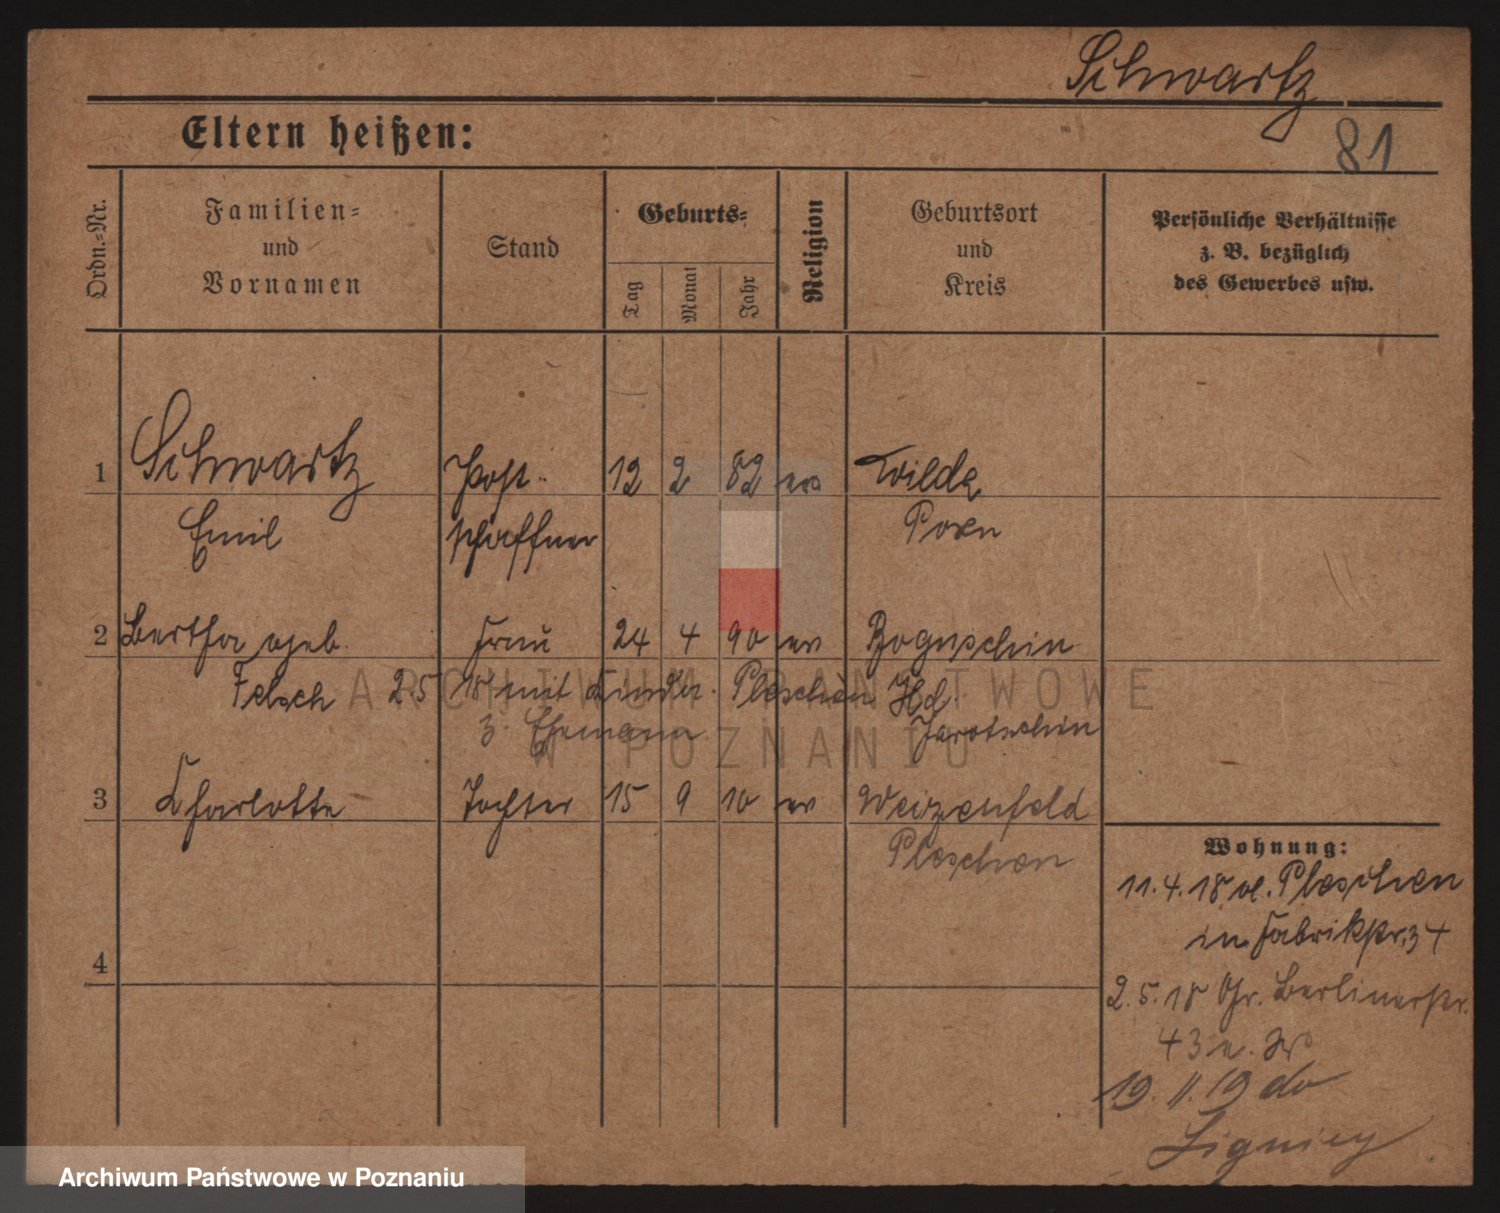 Schwartz
Eltern heißen:
81
Ordn.-Nr.
Familien-
und
Vornamen
Stand
Geburts-
Tag
Monat
Jahr
Religion
Geburtsort
und
Kreis
Persönliche Verhältnisse
z. B. bezüglich
des Gewerbes usw.
1 Schwartz Post- 12 2 82 ev Wilda
Emil schaffner Posen
2 Bertha geb. Frau 24 4 90 ev Boguschin
Felsch 2 5 18 mit Kinder. Pleschen
z. Ehemann Jarotschin
3 Charlotte Tochter 15 9 10 ev Weizenfeld
Pleschen
4
Wohnung:
11.4.18 v. Pleschen
in Fabrikstr. 34
2.5.18 Gr. Berlinerstr.
43
19.11.19
ARCHIWUM PAŃSTWOWE
W POZNANIU
Archiwum Państwowe w Poznaniu